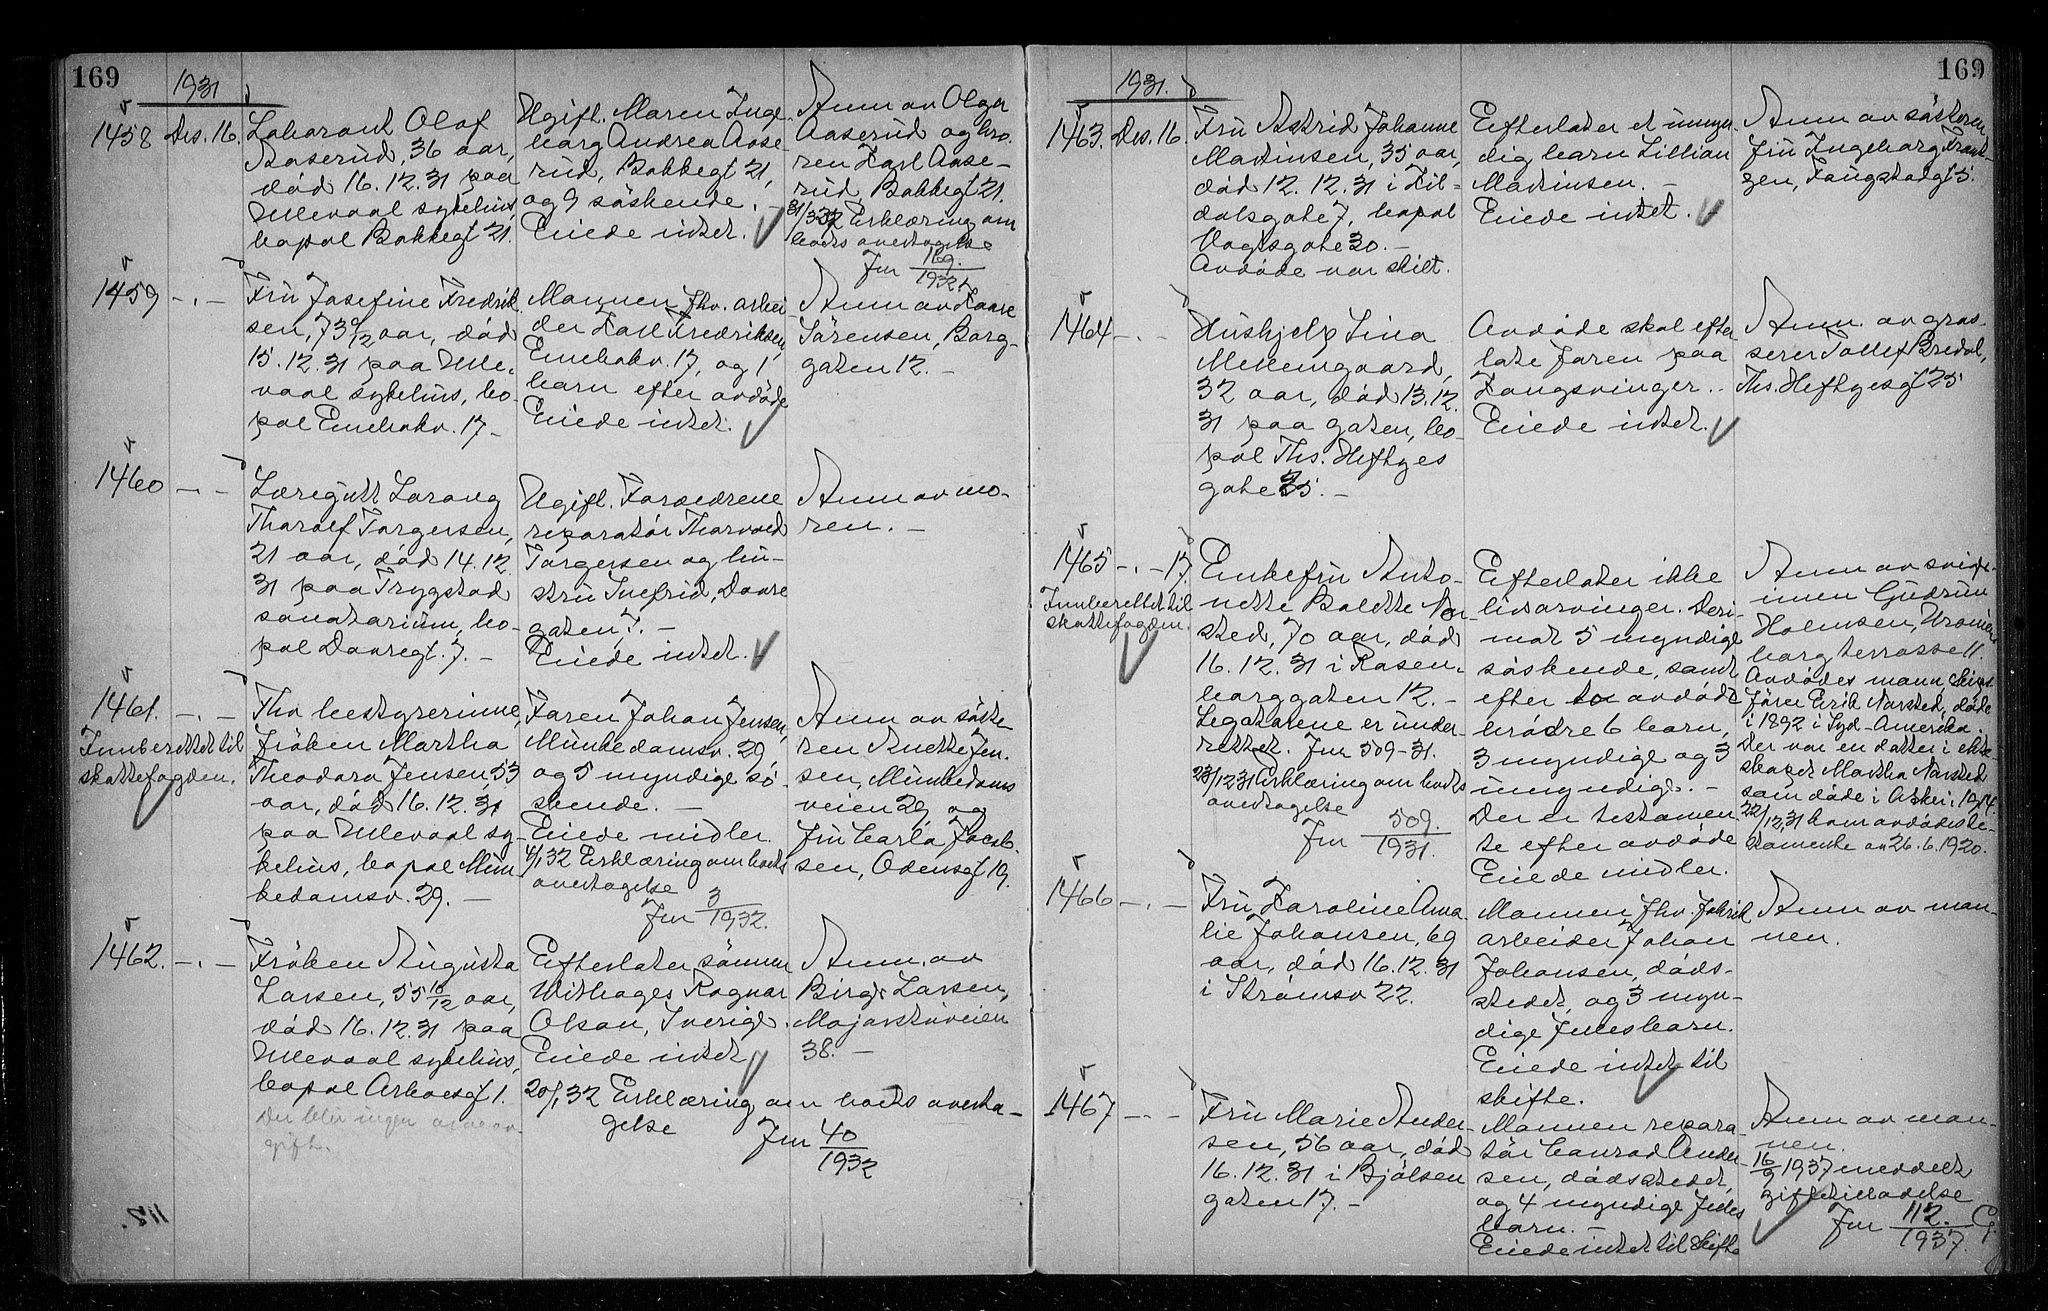 169
1931
1458 Des. 16.
Laborant Olaf
Aaserud, 36 aar,
död 16.12.31 paa
Ullevaal sykehus,
bopæl Bakkegt 21.
Ugift. Maren Inge-
borg Andrea Aase-
rud, Bakkegt 21,
og 9 söskende.
Eiede intet.
Anm av Olga
Aaserud og bro-
ren Karl Aase-
rud, Bakkegt 21.
31/3 32 Erklæring om
boets overtagelse
Jnr 169./1932.
1459 -.-
Fru Josefine Fredrik
sen, 73 /12 aar, död
15.12.31 paa Ulle-
vaal sykehus, bo-
pæl Enebakv. 17.-
Mannen fhv. arbei-
der Karl Fredriksen,
Enebakv. 17, og 1
barn efter avdöde
Eiede intet.
Anm av Kaare
Sörensen, Borg-
gaten 12.-
1460 -.-
Læregutt Lorang
Thoralf Torgersen,
21 aar, död 14.12.
31 paa Trygstad
sanatorium, bo-
pæl Davregt. 7.-
Ugift. Forældrene
reparatör Thorvald
Torgersen og hu-
stru Inefrid, Davre
gaten 7.-
Eiede intet.
Anm av mo-
ren.-
1461. -.-
Innberettet til
skattefogden.
Fhv bestyrerinne,
fröken Martha
Theodora Jensen, 53
aar, död 16.12.31
paa Ullevaal sy-
kehus, bopæl Mun
kedamsv. 29.-
Faren Johan Jensen,
Munkedamsv. 29,
og 5 myndige sö-
skende.-
Eiede midler.
4/1 32 Erklæring om boets
overtagelse
Jnr 3/1932.
Anm av söste
ren Anette Jen-
sen, Munkedams
veien 29, og
fru Carla Jacob-
sen, Odensgt 19.
1462. -.-
Fröken Augusta
Larsen, 55 10/12 aar,
död 16.12.31 paa
Ullevaal sykehus,
bopæl Arboesgt 1.
Der blir ingen arveav-
gift.
Efterlater sönnen
Withages Ragnar
Olsen, Sverige.
Eiede intet
20/1 32 Erklæring om boets overta-
gelse Jnr 40/1932
Anm. av
Birger Larsen,
Majorstuveien
38.-
118.
169
1931.
1463. Des. 16.
Fru Astrid Johanne
Martinsen, 35 aar,
död 12.12.31 i Kil-
dalsgate 7, bopæl
Vogtsgate 30.-
Avdöde var skilt.
Efterlater et umyn-
dig barn Lillian
Martinsen.-
Eiede intet.
Anm av sösteren
fru Ingeborg Frant-
zen, Faugstadgt 5.
1464 -.-
Hushjelp Lina
Mellemgaard,
32 aar, död 13.12.
31 paa gaten, bo-
pæl Ths. Heftyes
gate 25.-
Avdöde skal efter
late faren paa
Kongsvinger.-
Eiede intet.
Anm. av gros-
serer Tollef Bredal,
Ths. Heftyesgt 25
1465 -.- 17.
Innberettet til
skattefogden.
Enkefru Anto-
nette Bolette Nor
sted, 70 aar, död
16.12.31 i Rosen-
borggaten 12.-
Legatarene er under-
rettet. Jnr 509-31.
23/12 31 Erklæring om boets
overtagelse
Jnr 509./1931.
Efterlater ikke
livsarvinger. Deri-
mot 5 myndige
söskende, samt
efter to avdöde
brödre 6 barn,
3 myndige og 3
umyndige.-
Der er testamen
te efter avdöde
Eiede midler.
Anm av svige-
innen Gudrun
Holmsen, Uranien
borg terrasse 11.
Avdödes mann, skibs-
förer Erik Norsted, döde
i 1892 i Syd-Amerika.
Der var en datter i ekte-
skapet Martha Norsted
som döde i Asker i 1914.
22/12 31 kom avdödes te-
stamente av 26.6.1920.
1466 -.-
Fru Karoline Ama-
lie Johansen, 69
aar, död 16.12.31
i Strömsv 22.
Mannen fhv. fabrik
arbeider Johan
Johansen, döds-
stedet, og 3 myn-
dige fellesbarn.
Eiede intet til
skifte.
Anm av man-
nen.
1467 -.-
Fru Marie Ander-
sen, 56 aar, död
16.12.31 i Bjölsen
gaten 17.-
Mannen repara-
tör Conrad Ander-
sen, dödsstedet,
og 4 myndige felles
barn.-
Eiede intet til skifte
Anm av man-
nen.
16/9 1937 meddelt
giftetilladelse
Jnr 112./1937. G.